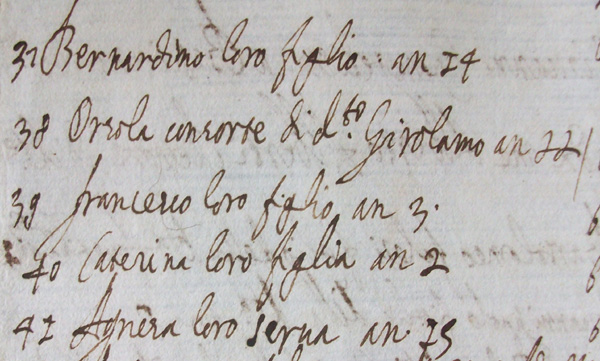 37 Bernardino loro figlio an 14
38 Orsola consorte di d.to Girolamo an 22
39 francesco loro figlio an 3.
40 Caterina loro figlia an 2
41 Agnesa loro serua an. 75